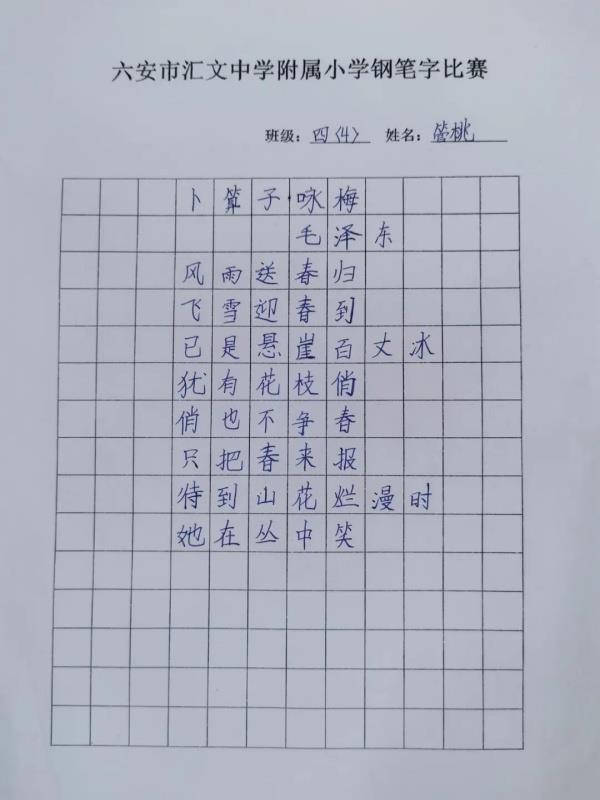 六安市汇文中学附属小学钢笔字比赛
班级：四〈4〉 姓名：管桃
卜算子·咏梅
毛泽东
风雨送春归
飞雪迎春到
已是悬崖百丈冰
犹有花枝俏
俏也不争春
只把春来报
待到山花烂漫时
她在丛中笑